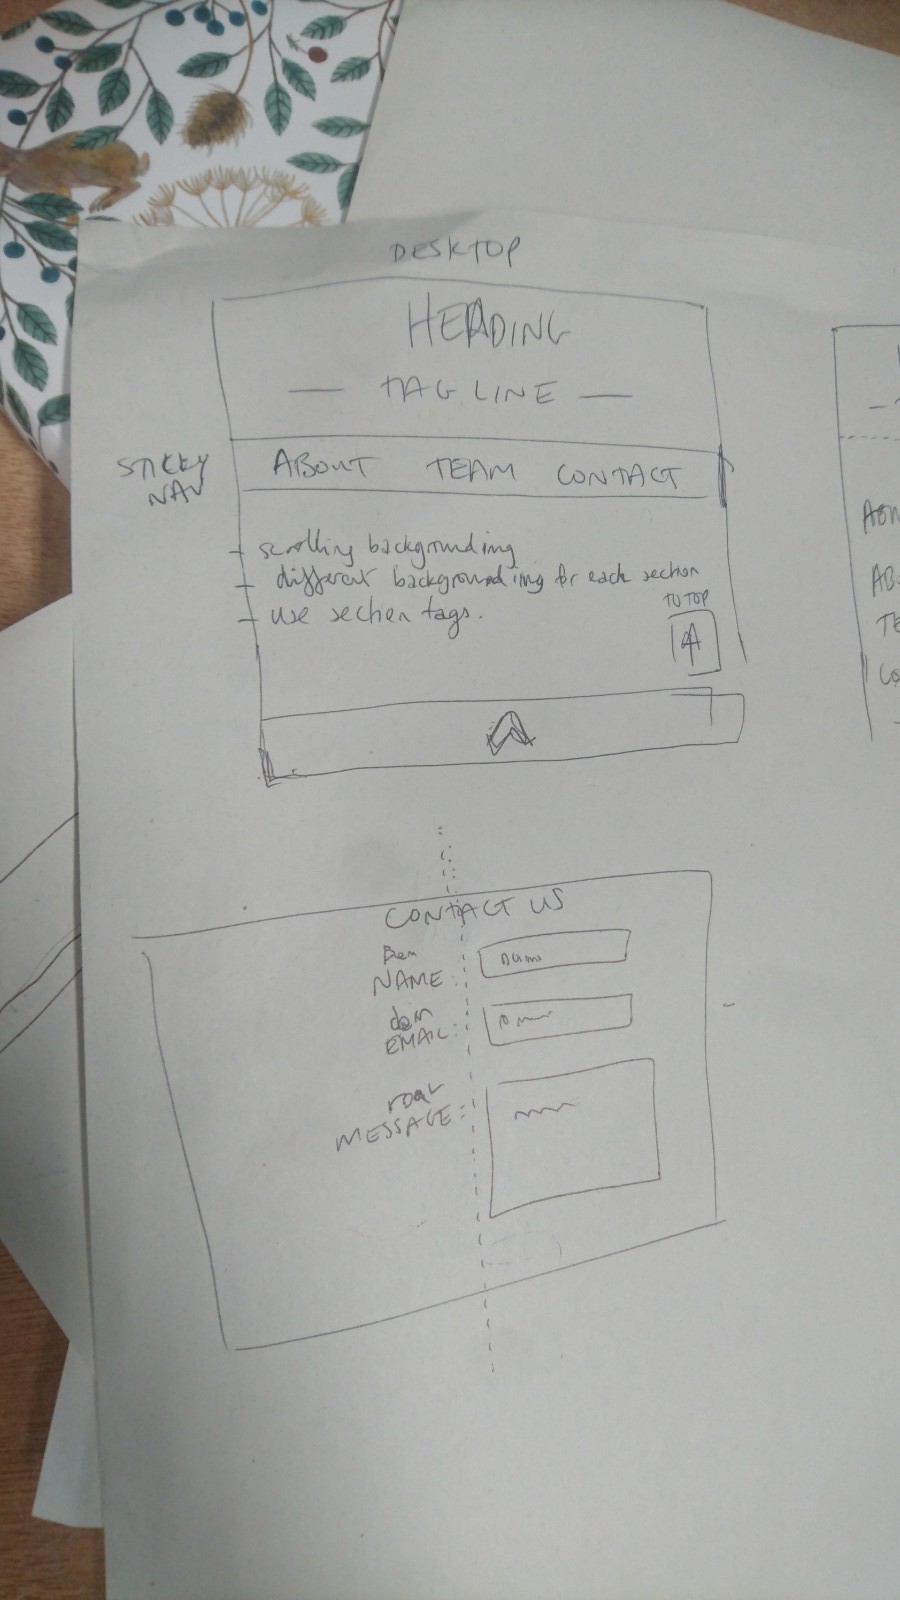 DESKTOP
HEADING
— TAG LINE —
STICKY
NAV
ABOUT TEAM CONTACT
- scrolling background img
- different background img for each section
- use section tags.
TO TOP
CONTACT US
NAME:
EMAIL:
MESSAGE:
AB
TE
CO